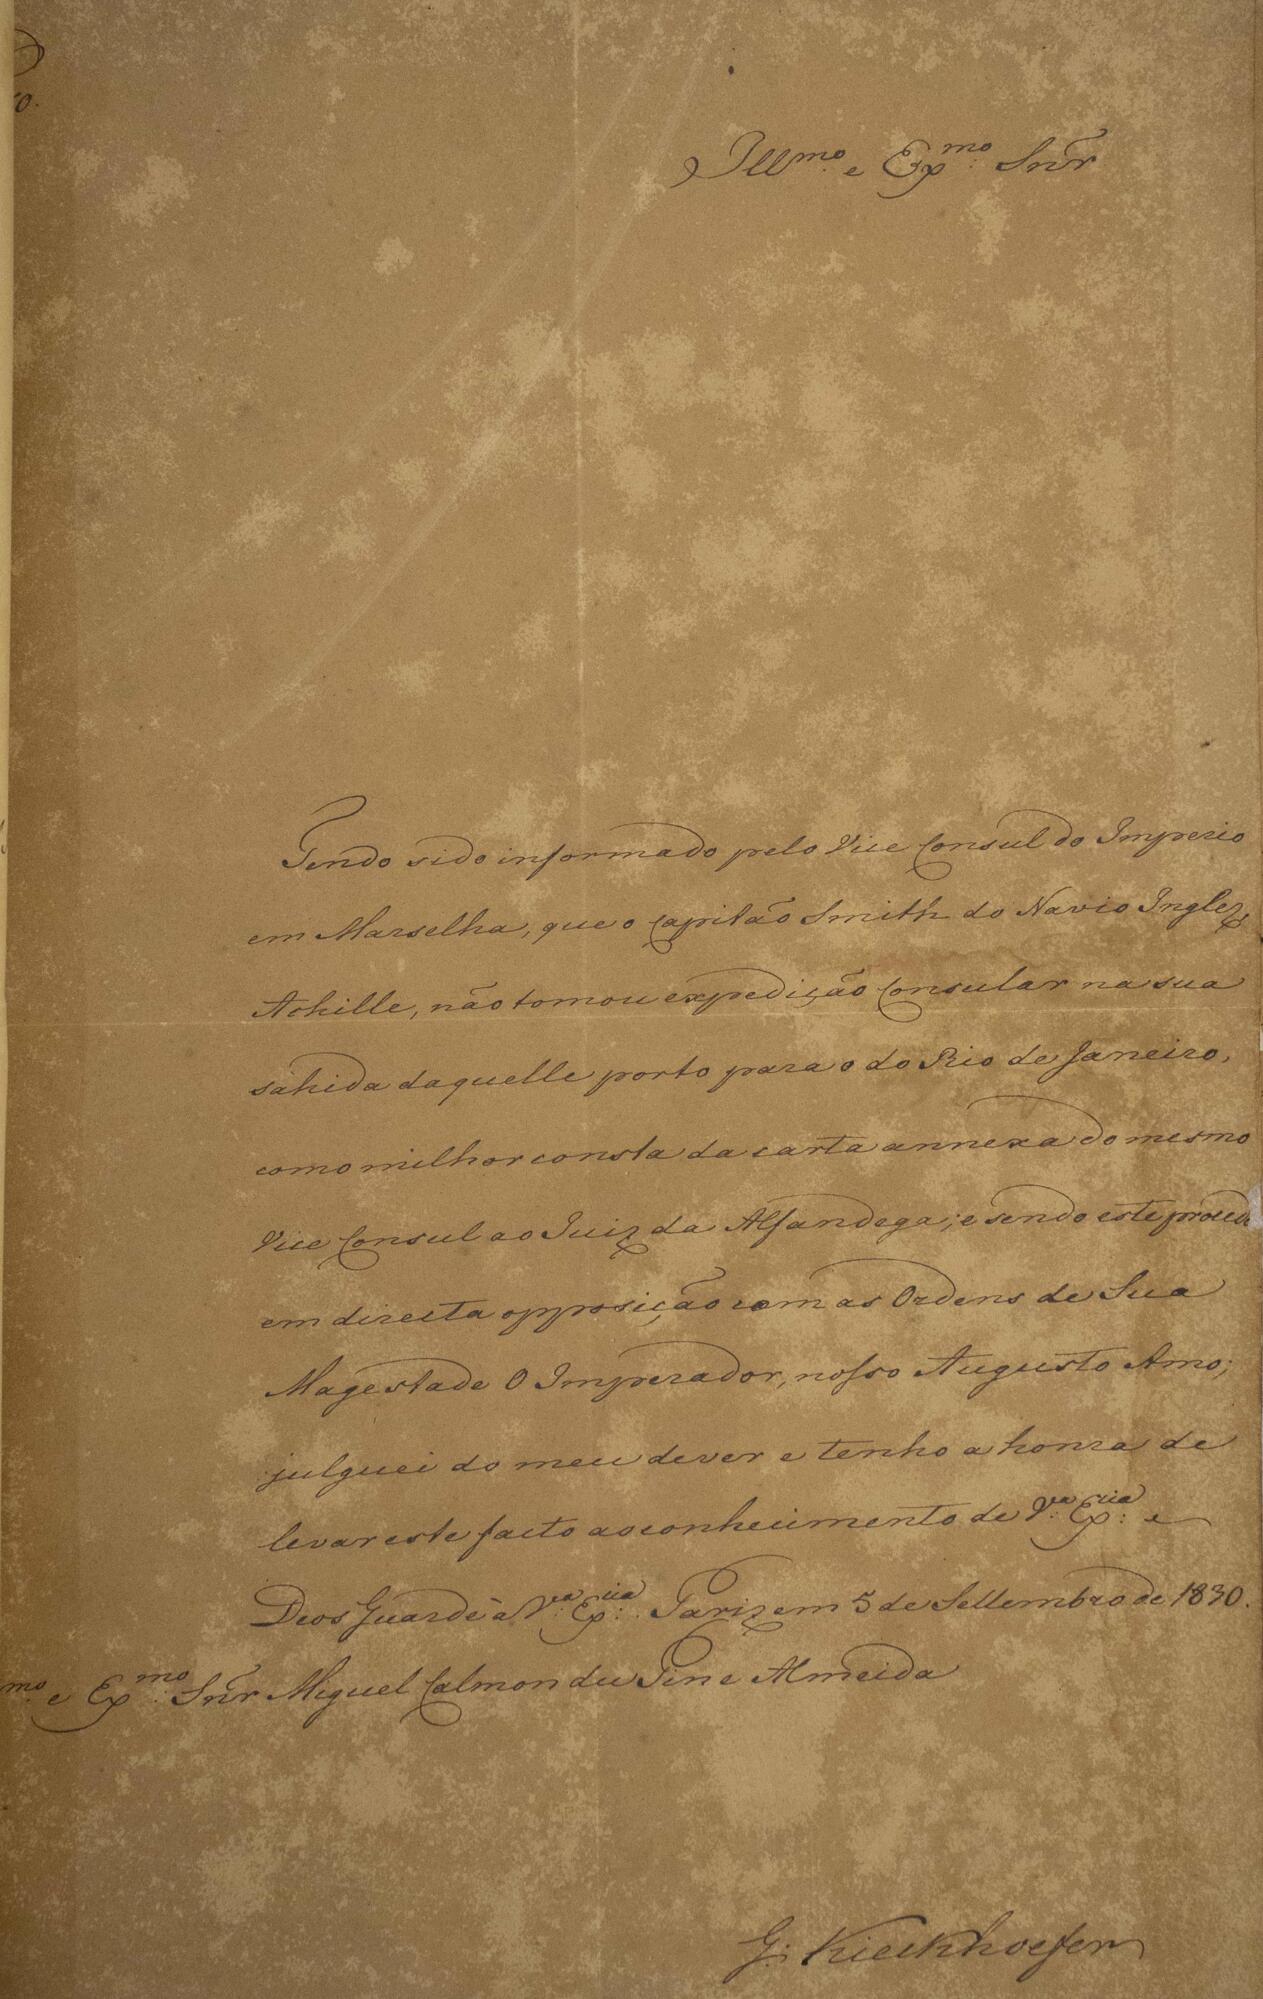 Illmo. e Exmo. Snr̃
Tendo sido informado pelo Vice Consul do Imperio
em Marselha, que o Capitão Smith do Navio Inglez
Achille, não tomou expedição Consular na sua
sahida daquelle porto para o do Rio de Janeiro,
como milhor consta da carta annexa do mesmo
Vice Consul ao Juiz da Alfandega; e sendo este procede
em directa opposição com as Ordens de Sua
Magestade O Imperador, nosso Augusto Amo;
julguei do meu dever e tenho a honra de
levar este facto ao conhecimento de Va. Excia. e
Deos Guarde à Va. Excia. Pariz em 5 de Settembro de 1830.
mo. e Exmo. Snr̃ Miguel Calmon du Pin e Almeida
G: Kieckhoefer